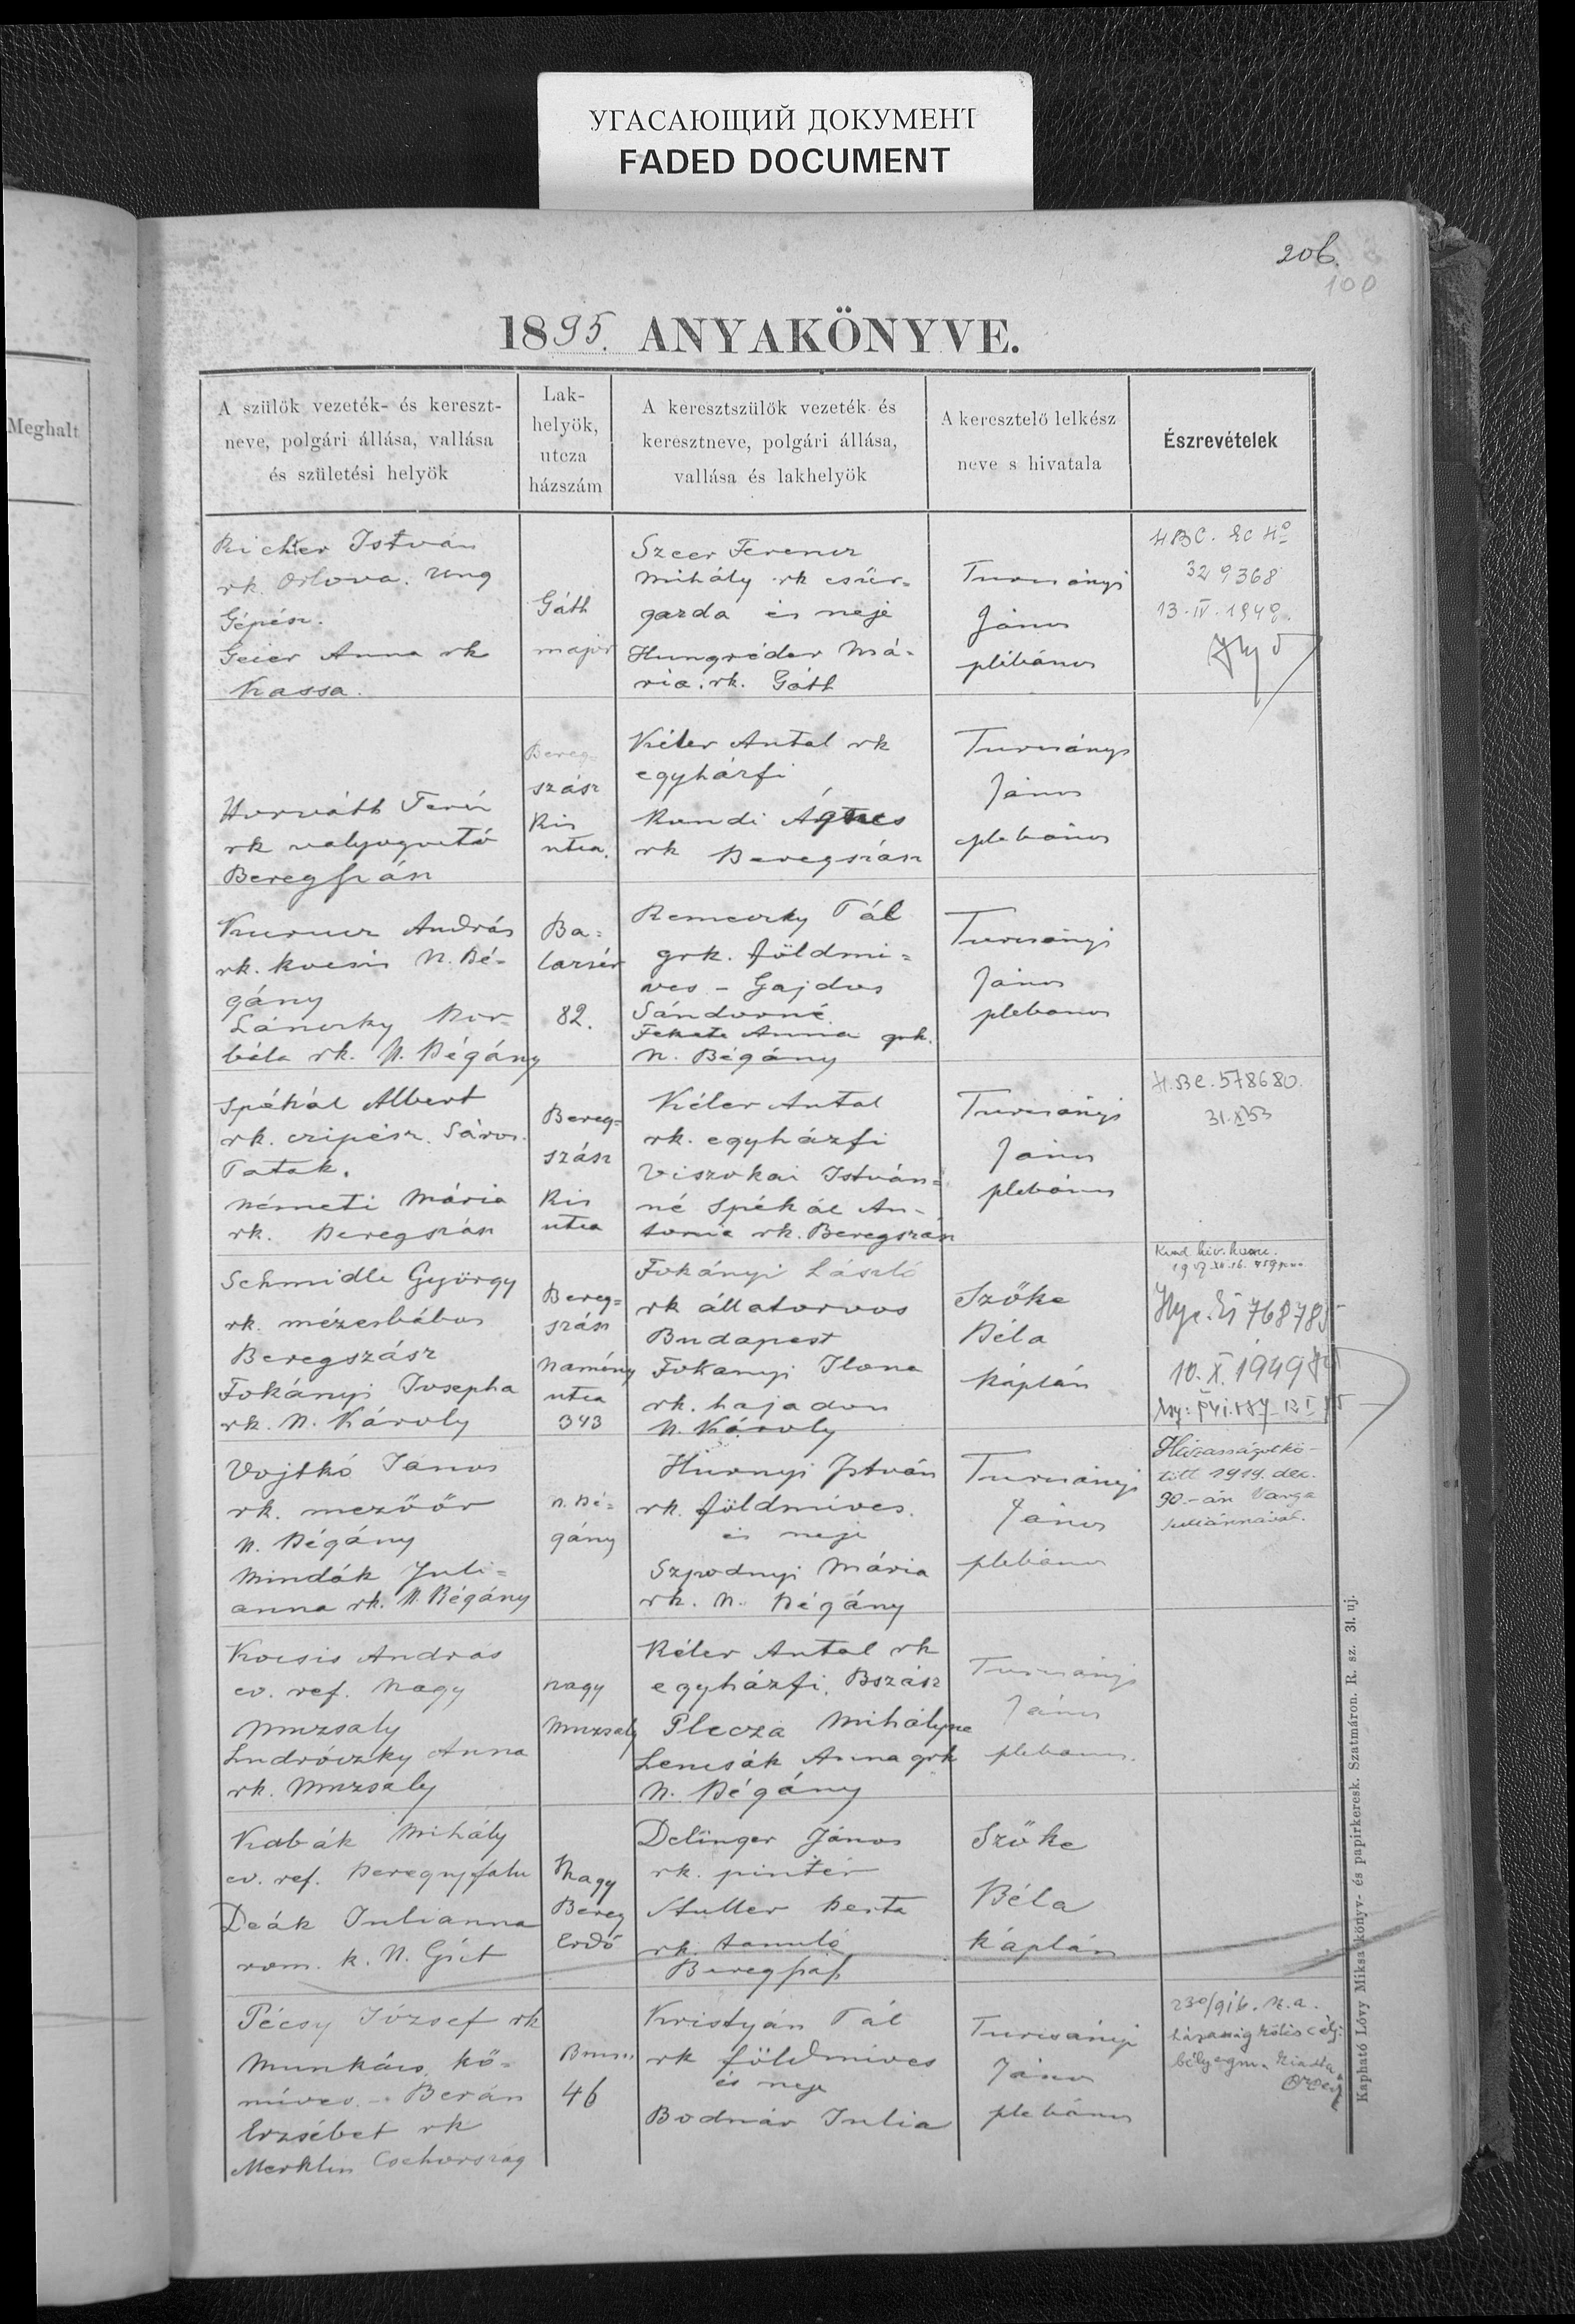 УГАСАЮЩИЙ ДОКУМЕНТ
FADED DOCUMENT
206.
100
Meghalt
1895. ANYAKÖNYVE.
A szülök vezeték- és kereszt-
neve, polgári állása, vallása
és születési helyök
Lak-
helyök,
utcza
házszám
A keresztszülök vezeték és
keresztneve, polgári állása,
vallása és lakhelyök
A keresztelő lelkész
neve s hivatala
Észrevételek
Richter István
rk. Orlova. Ung
Gépész.
Geier Anna rk
Kassa.
Gáth
major
Szeer Ferencz
Mihály rk csűr-
gazda és neje
Hungréder Má-
ria. rk. Gáth
Turcsányi
János
plébános
329368
13.IV.1948.
Horváth Teréz
rk valyogvető
Beregszász
Bereg-
szász
Kis
utca.
Kéler Antal rk
egyházfi
Rundi Ágnes
rk Beregszász
Turcsányi
János
plebános
Kurucz András
rk. kocsis N. Bé-
gány
Lánczky Bor-
bála rk. N. Bégány
Ba-
lazsér
82.
Remeczky Pál
grk. földmi-
ves - Gajdos
Sándorné
Fekete Anna grk.
N. Bégány
Turcsányi
János
plebanos
Spékál Albert
rk. czipész. Sáros.
Patak.
Németi Mária
rk. Beregszász
Bereg-
szász
Kis
utca
Kéler Antal
rk. egyházfi
Viszokai István-
né Spékál An-
tonia rk. Beregszász
Turcsányi
János
plebános
H.Be. 578680.
Schmidle György
rk. mézesbábos
Beregszász
Fokányi Josepha
rk. N. Károly
Bereg-
szász
Namény
utca
343
Fokányi László
rk állatorvos
Budapest
Fokanyi Ilona
rk. hajadon
N. Károly
Szőke
Béla
káplán
768785
10.X.1949
Vojtkó János
rk. mezőőr
N. Bégány
Mindák Juli-
anna rk. N. Bégány
N. Bé-
gány
Hurnyi István
rk. földmíves.
és neje
Szpodnyi Mária
rk. N. Bégány
Turcsányi
János
plebános
Házasságotkö-
tött 1919. dec.
30.-án Varga
Juliánnával.
Kocsis András
ev. ref. Nagy
Muzsaly
Ludróczky Anna
rk. Muzsaly
Nagy
Muzsaly
Kéler Antal rk
egyházfi. Bszász
Plecza Mihályne
Lencsák Anna grk
N. Bégány
Turcsányi
János
plebanos.
Kabák Mihály
ev. ref. Beregujfalu
Deák Julianna
rom. k. N. Géct
Nagy
Bereg
Erdő
Delinger János
rk. pintér
Stuller Berta
rk. tanuló
Beregszász
Szőke
Béla
káplán
Pécsy József rk
Munkács kő-
míves. - Berán
Erzsébet rk
Merklin Csehország
46
Kristyán Pál
rk földmíves
és neje
Bodnár Julia
Turcsányi
János
plebános
Kapható Lővy Miksa könyv- és papirkeresk. Szatmáron. R. sz. 31. uj.